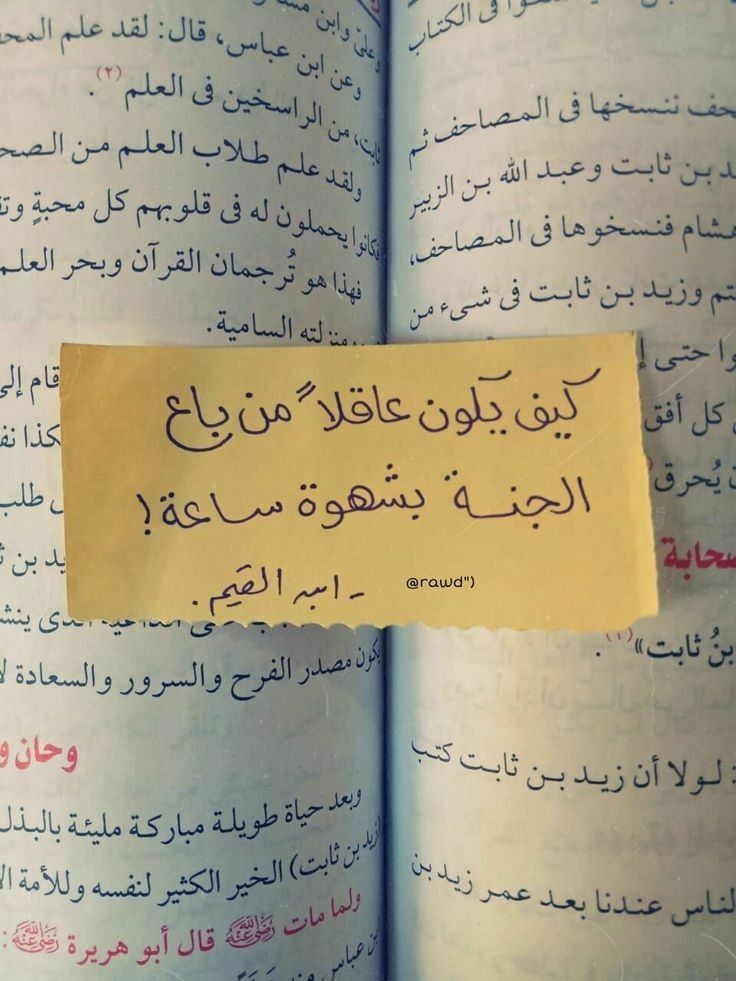 حف ننسخها فى المصاحف ثم
د بن ثابت وعبد الله بن الزبير
هشام فنسخوها فى المصاحف،
تم وزيد بن ثابت فى شىء من
وا حتى
كل أفق
يُحرق
صحابة
بنُ ثابت» (١).
: لولا أن زيد بن ثابت كتب
لناس عندنا بعد عمر زيد بن
وعلىّ وابن
وعن ابن عباس، قال: لقد علم المحف
ثابت، من الراسخين فى العلم (٢).
ولقد علم طلاب العلم من الصحا
فكانوا يحملون له فى قلوبهم كل محبةٍ وتق
فهذا هو تُرجمان القرآن وبحر العلم
ومنزلته السامية.
قام إلى
كذا نف
طلب
يد بن ث
كيف يكون عاقلاً من باع
الجنة بشهوة ساعة!
- ابن القيم.
@rawd")
الذى ينش
يكون مصدر الفرح والسرور والسعادة لأ
وحان و
وبعد حياة طويلة مباركة مليئة بالبذل
(زيد بن ثابت) الخير الكثير لنفسه وللأمة الإ
ولما مات رضي الله عنه قال أبو هريرة رضي الله عنه:
ابن عباس